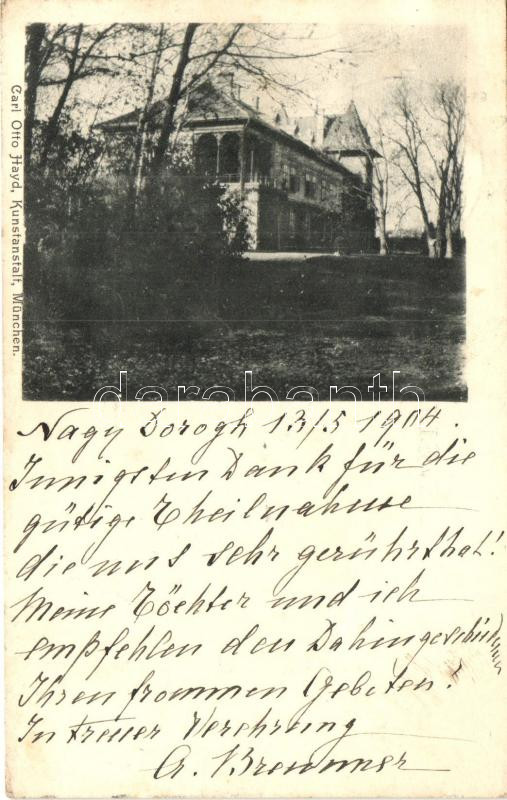 Carl Otto Hayd, Kunstanstalt, München.
darabanth
Nagy Dorogh 13/5 1904.
Innigsten Dank für die
gütige Theilnahme
die uns sehr gerührt hat!
Meine Töchter und ich
empfehlen den
Ihren frommen Gebeten!
In treuer Verehrung